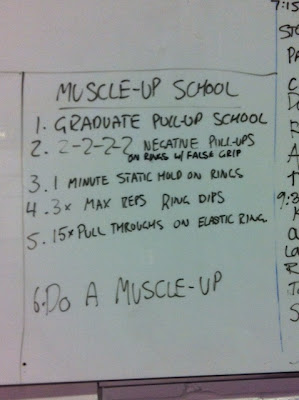 MUSCLE-UP SCHOOL
1. GRADUATE PULL-UP SCHOOL
2. 2-2-2-2 NEGATIVE PULL-UPS
ON RINGS W/ FALSE GRIP
3. 1 MINUTE STATIC HOLD ON RINGS
4. 3x MAX REPS RING DIPS
5. 15x PULL THROUGHS ON ELASTIC RING.
6. DO A MUSCLE-UP
7:15